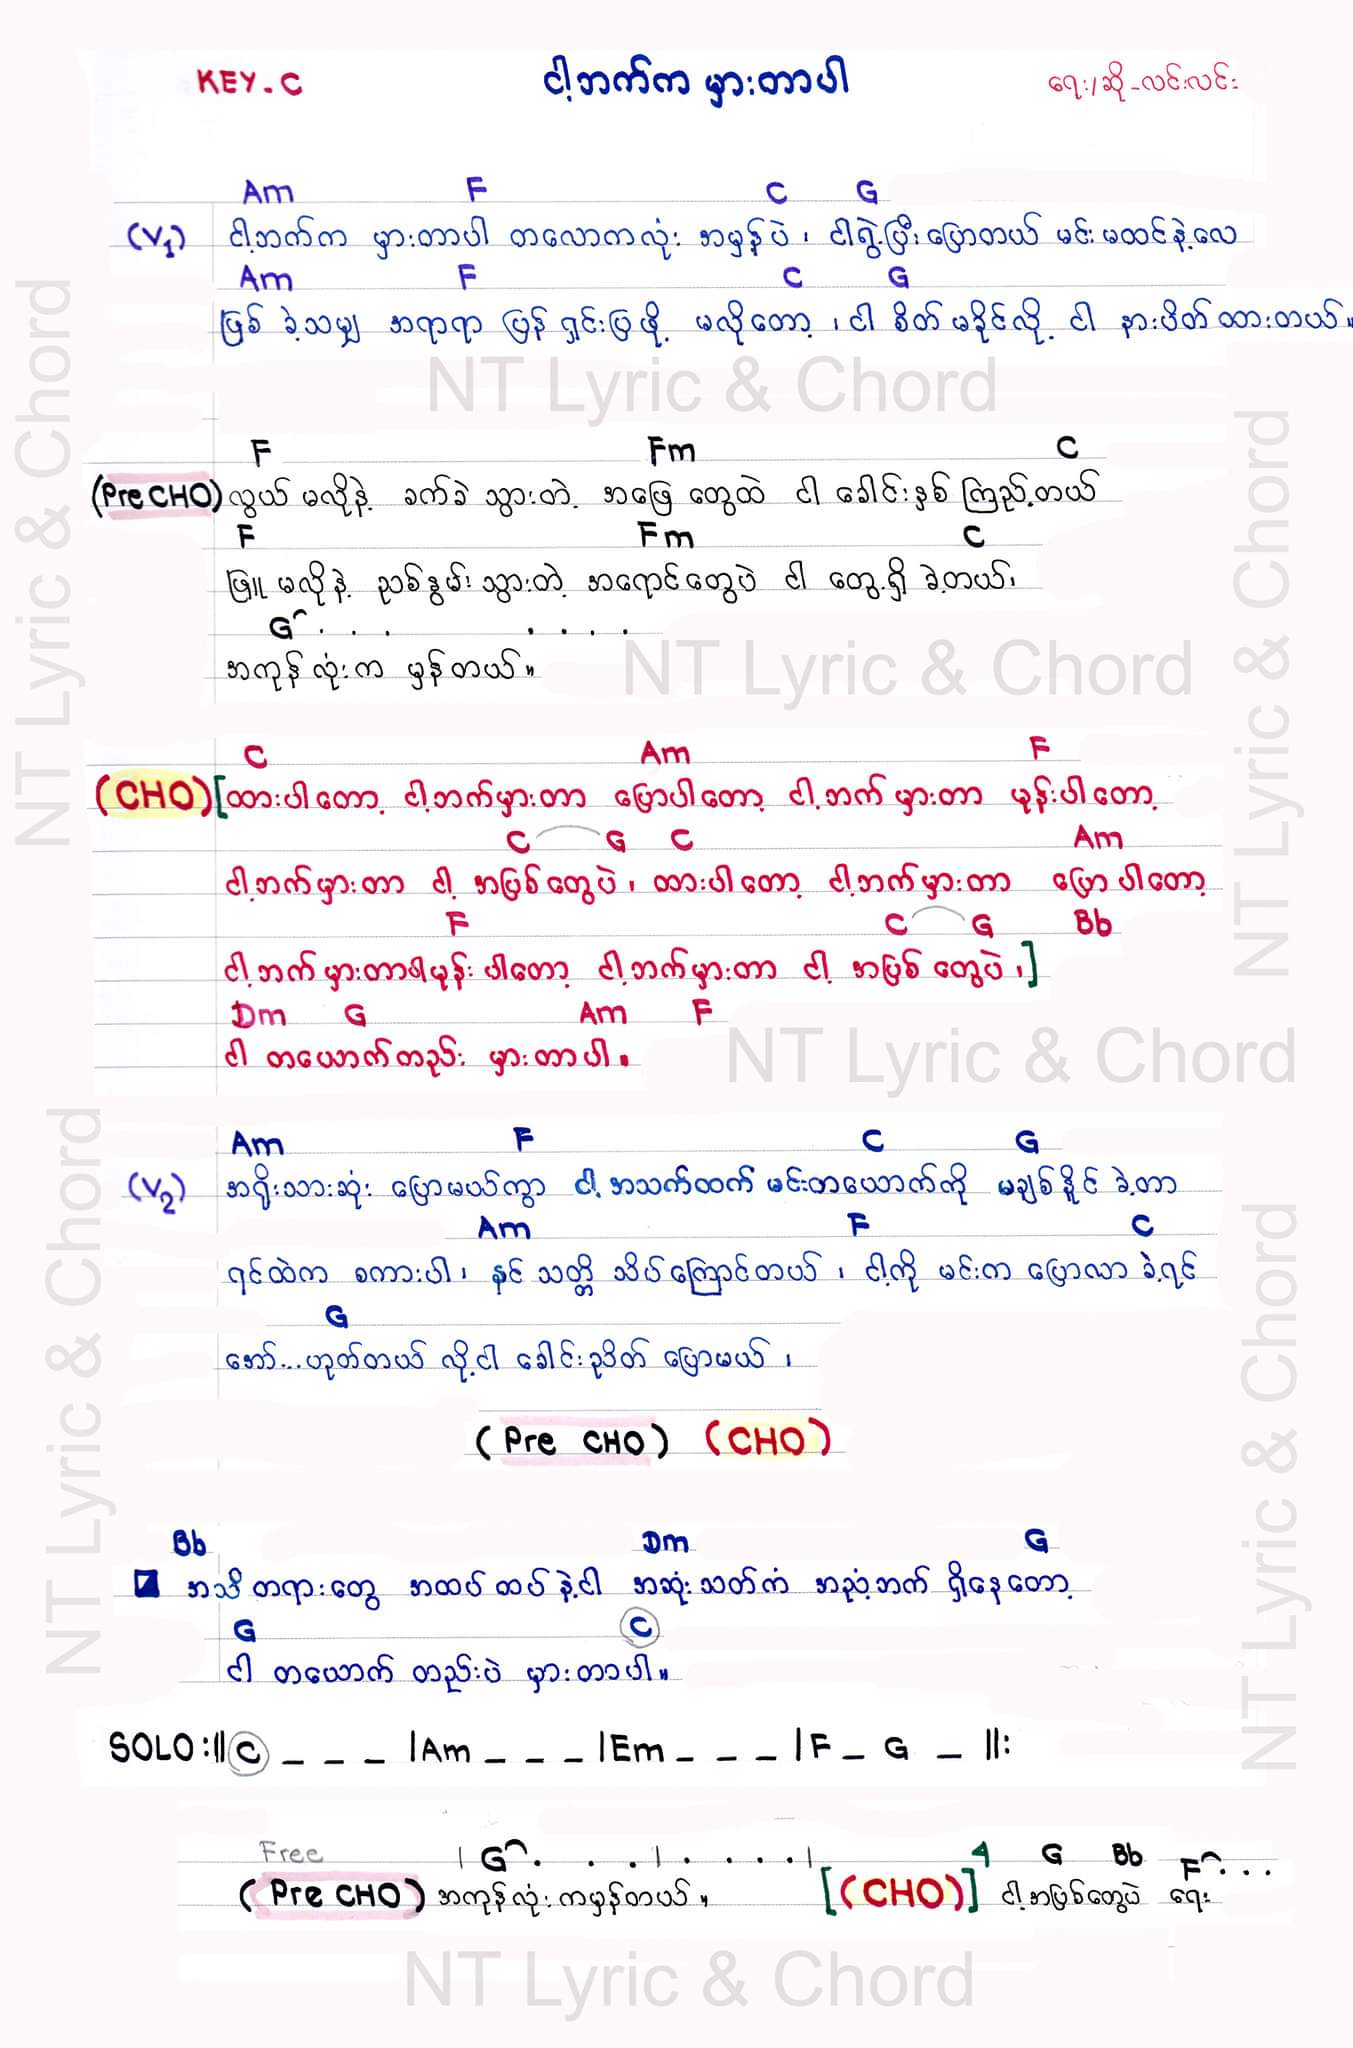 KEY - C ငါ့ဘက်က မှားတာပါ ရေး/ဆို - လင်းလင်း
Am F C G
(V1) ငါ့ဘက်က မှားတာပါ တလောကလုံး အမှန်ပဲ ၊ ငါရွဲ့ပြီးပြောတယ် မင်းမထင်နဲ့လေ
Am F C G
ဖြစ်ခဲ့သမျှ အရာရာ ပြန်ရှင်းပြဖို့ မလိုတော့ ၊ ငါ စိတ်မခိုင်လို့ ငါ နားပိတ်ထားတယ်။
NT Lyric & Chord
F Fm C
(Pre CHO) လွယ်မလိုနဲ့ ခက်ခဲသွားတဲ့ အဖြေတွေထဲ ငါ ခေါင်းနှစ်ကြည့်တယ်
F Fm C
ဖြူမလိုနဲ့ ညစ်နွမ်းသွားတဲ့ အရောင်တွေပဲ ငါ တွေ့ရှိခဲ့တယ်၊
G . . . . . . .
အကုန်လုံးက မှန်တယ်။
NT Lyric & Chord
C Am F
(CHO) [ထားပါတော့ ငါ့ဘက်မှားတာ ပြောပါတော့ ငါ့ဘက်မှားတာ မုန်းပါတော့
C G C Am
ငါ့ဘက်မှားတာ ငါ့ အပြစ်တွေပဲ ၊ ထားပါတော့ ငါ့ဘက်မှားတာ ပြောပါတော့
F C G Bb
ငါ့ဘက်မှားတာပါမုန်းပါတော့ ငါ့ဘက်မှားတာ ငါ့ အပြစ်တွေပဲ ၊]
Dm G Am F
ငါ တယောက်တည်း မှားတာပါ။
NT Lyric & Chord
Am F C G
(V2) အရိုးသားဆုံး ပြောမယ်ကွာ ငါ့အသက်ထက် မင်းတယောက်ကို မချစ်နိူင်ခဲ့တာ
Am F C
ရင်ထဲက စကားပါ ၊ နင် သတ္တိ သိပ်ကြောင်တယ် ၊ ငါ့ကို မင်းက ပြောလာခဲ့ရင်
G
အော်...ဟုတ်တယ်လို့ ငါ ခေါင်းညိတ်ပြောမယ် ၊
(Pre CHO) (CHO)
Bb Dm G
အသိတရားတွေ အထပ်ထပ်နဲ့ငါ အဆုံးသတ်ကံ အညံ့ဘက် ရှိနေတော့
G C
ငါ တယောက်တည်းပဲ မှားတာပါ။
SOLO :|| C _ _ _ |Am _ _ _ |Em _ _ _ |F _ G _ ||:
Free | G . . . | . . . . | 4 G Bb F . . .
(Pre CHO) အကုန်လုံးကမှန်တယ်။ [(CHO)] ငါ့အပြစ်တွေပဲ ရေး
NT Lyric & Chord
NT Lyric & Chord
NT Lyric & Chord
NT Lyric & Chord
NT Lyric & Chord